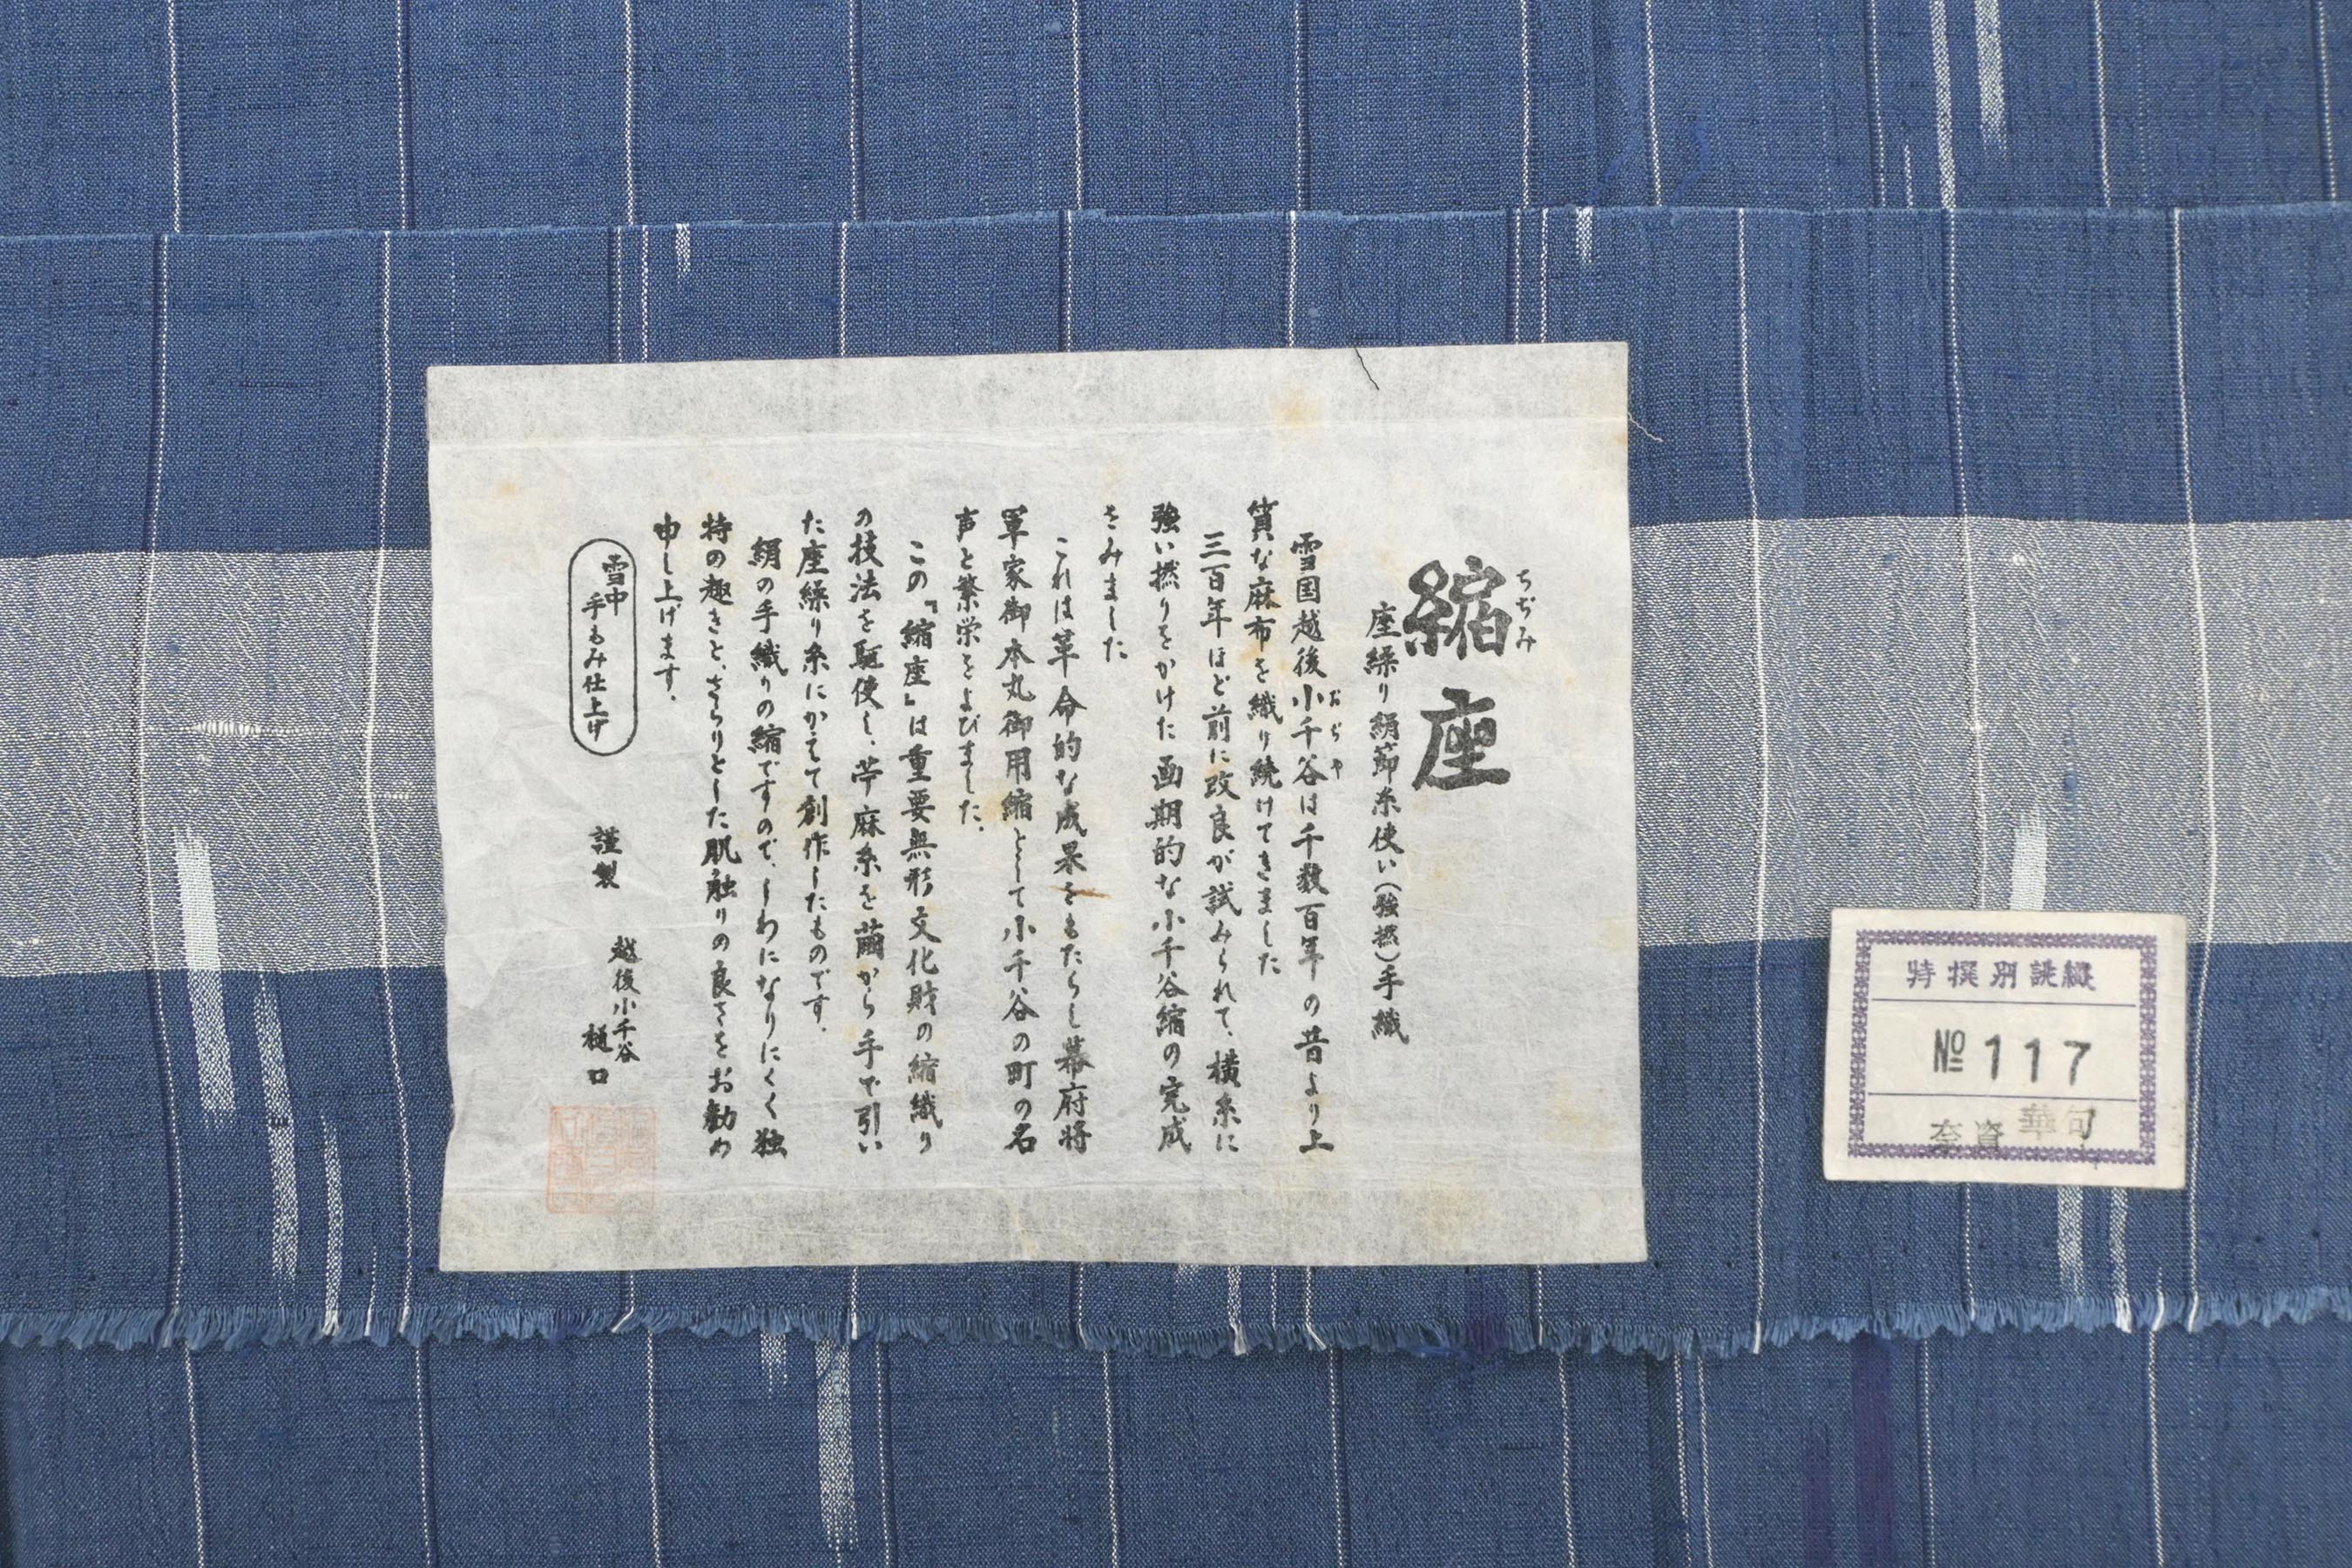 縮座
ちぢみ
座繰り絹節糸使い(強撚)手織
雪国越後小千谷は千数百年の昔より上
おぢや
質な麻布を織り続けてきました
三百年ほど前に改良が試みられて、横糸に
強い撚りをかけた画期的な小千谷縮の完成
をみました
これは革命的な成果をもたらし幕府将
軍家御本丸御用縮として小千谷の町の名
声と繁栄をよびました.
この『縮座』は重要無形文化財の縮織り
の技法を駆使し、苧麻糸を繭から手で引い
た座繰り糸にかえて創作したものです.
絹の手織りの縮ですので、しわになりにくく独
特の趣きと、さらりとした肌触りの良さをお勧め
申し上げます.
雪中
手もみ仕上げ
謹製
越後小千谷
樋口
特撰別誂織
№117